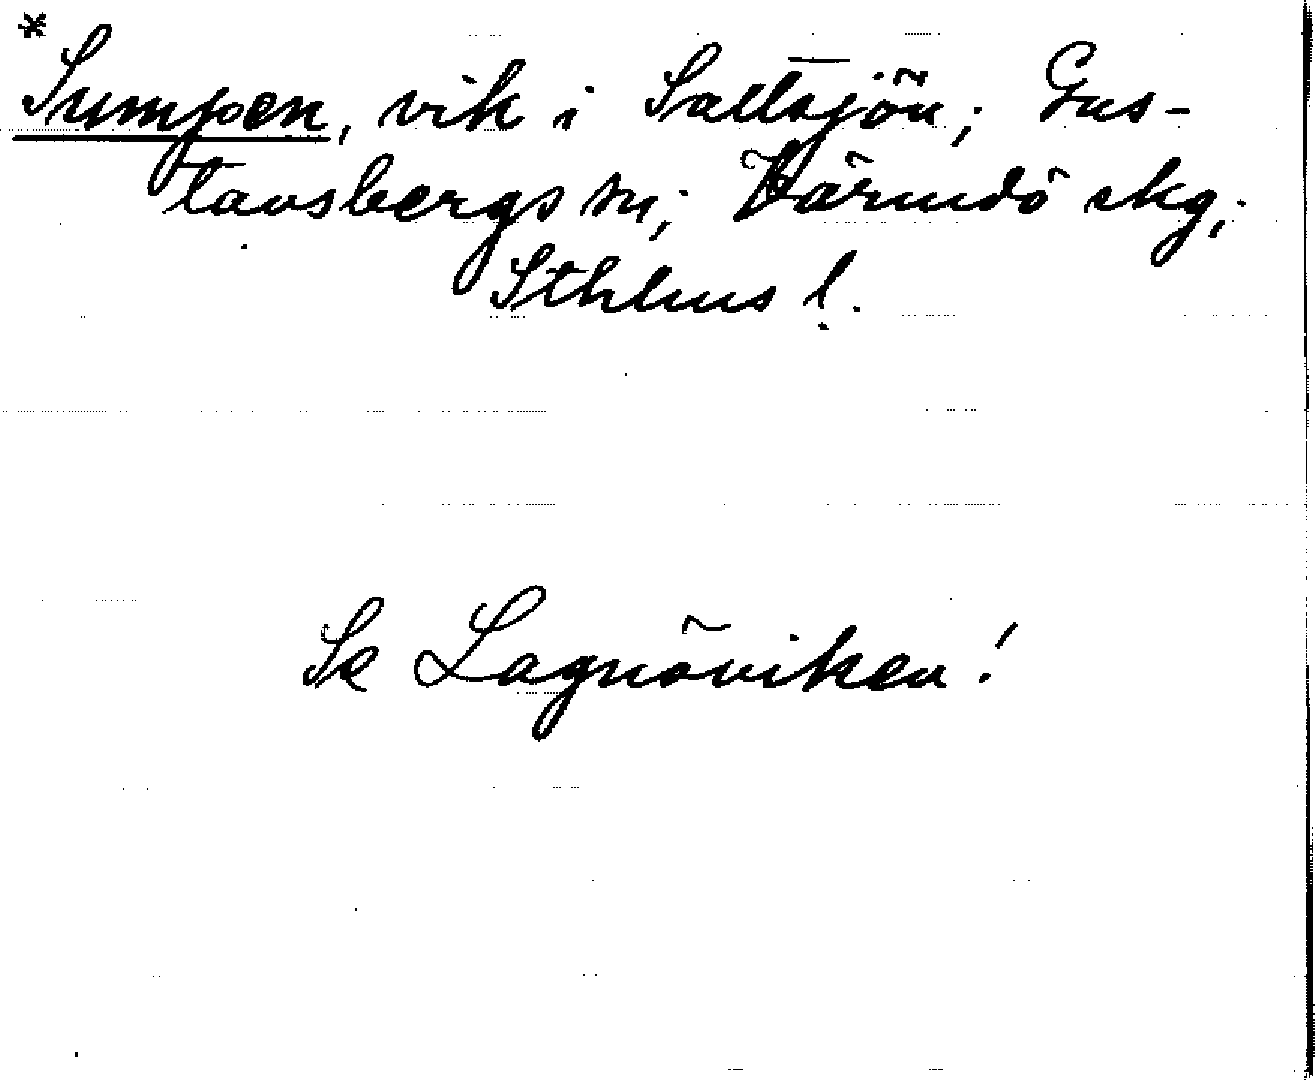 * Sumpen, vik i Saltsjön; Gus-
tavsbergs sn; Värmdö skg;
Sthlms l.
Se Lagnöviken!